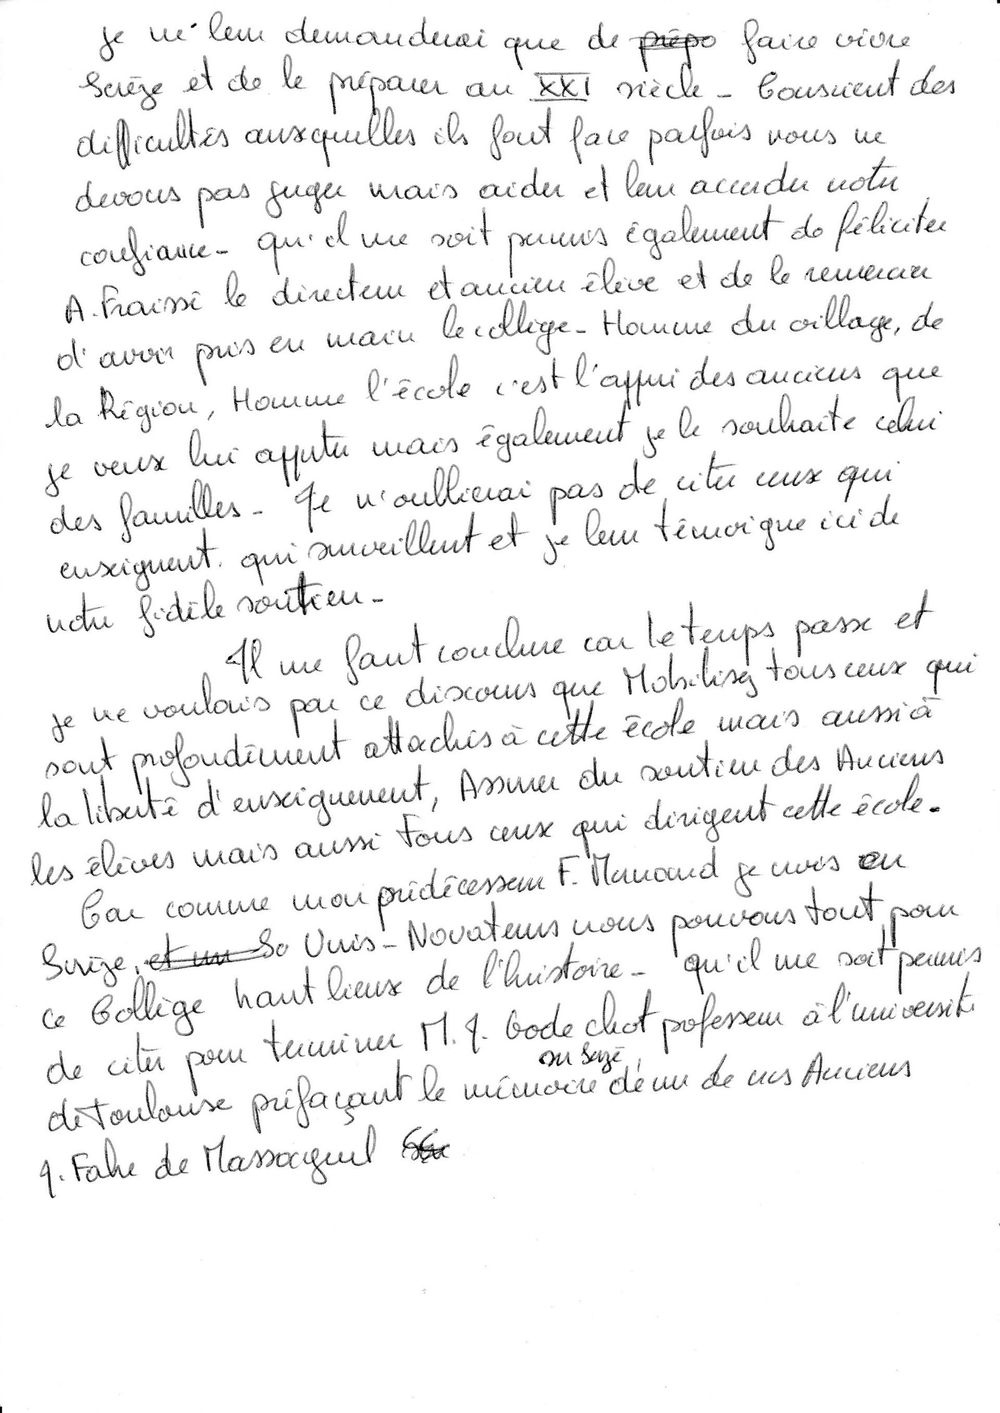 je ne leur demanderai que de prépo faire vivre
Sorèze et de le préparer au XXI siècle - Conscient des
difficultés auxquelles ils font face parfois nous ne
devons pas juger mais aider et leur accorder notre
confiance - qu'il me soit permis également de féliciter
A. Fraissé le directeur et ancien élève et de le remercier
d'avoir pris en main le collège - Homme du village, de
la Région, Homme l'école c'est l'appui des anciens que
je veux lui apporter mais également je le souhaite celui
des familles - Je n'oublierai pas de citer ceux qui
enseignent. qui surveillent et je leur témoigne ici de
notre fidèle soutien -
Il me faut conclure car le temps passe et
je ne voulais par ce discours que Mobilisez tous ceux qui
sont profondément attachés à cette école mais aussi à
la liberté d'enseignement, Assurer du soutien des Anciens
les élèves mais aussi tous ceux qui dirigent cette école.
Car comme mon prédécesseur F. je crois en
Sorèze, et un So Unis - Novateurs nous pouvons tout pour
ce Collège haut lieux de l'histoire - qu'il me soit permis
de citer pour terminer M. J. Godechot professeur à l'université
de Toulouse préfaçant le mémoire sur Sorèze, d'un de nos Anciens
J. Fabre de Massaguel